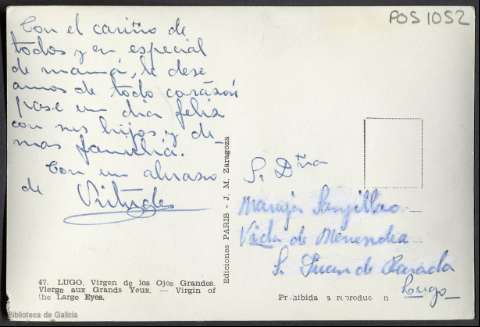 POS 1052
Con el cariño de
todos y en especial
de mamá, le dese
amos de todo corazón
pase un dia feliz
con sus hijos y de-
mas familia.
Con un abrazo
de Virtudes
Ediciones PARIS - J. M. Zaragoza
S. Dña
Maruja Sanjillao
Vda de Menendez
S. Juan de Parada
Lugo
47. LUGO. Virgen de los Ojos Grandes.
Vierge aux Grands Yeux. — Virgin of
the Large Eyes.
Prohibida la reproducción
Biblioteca de Galicia